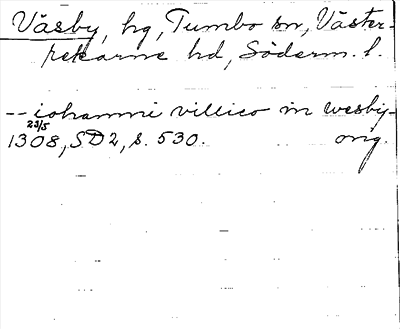 Väsby, hg, Tumbo sn, Väster-
rekarne hd, Söderm. l.
-- iohanni villico in wesby -
1308 23/5, SD2, s. 530. orig.